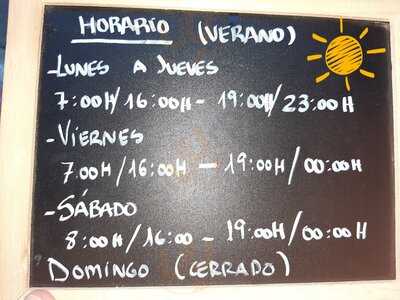 HORARIO (VERANO)
-LUNES A JUEVES
7:00H/16:00H - 19:00H/23:00H
-VIERNES
7:00H/16:00H - 19:00H/00:00H
-SÁBADO
8:00H/16:00 - 19:00H/00:00H
DOMINGO (CERRADO)